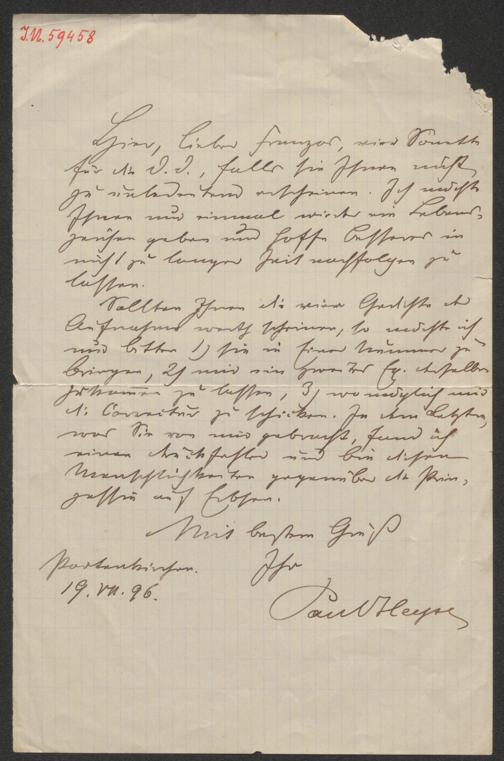 I.N. 59458
Hier, lieber Franzos, vier Sonette
für die D. D., falls sie Ihnen nicht
zu unbedeutend erscheinen. Ich möchte
Ihnen nur einmal wieder ein Lebens-
zeichen geben und hoffe Besseres in
nicht zu langer Zeit nachfolgen zu
lassen.
Sollten Ihnen die vier Gedichte der
Aufnahme werth scheinen, so möchte ich
nur bitten 1) sie in Einer Nummer zu
bringen, 2) mir ein zweites Ex. derselben
zukommen zu lassen, 3) womöglich mir
die Correctur zu schicken. In dem Letzten,
was Sie von mir gebracht, fand ich
einen Druckfehler und bin in diesen
Menschlichkeiten gegenüber die Prin-
zessin auf Erbsen.
Mit bestem Gruß
Ihr
Partenkirchen.
19. VII. 96.
Paul Heyse